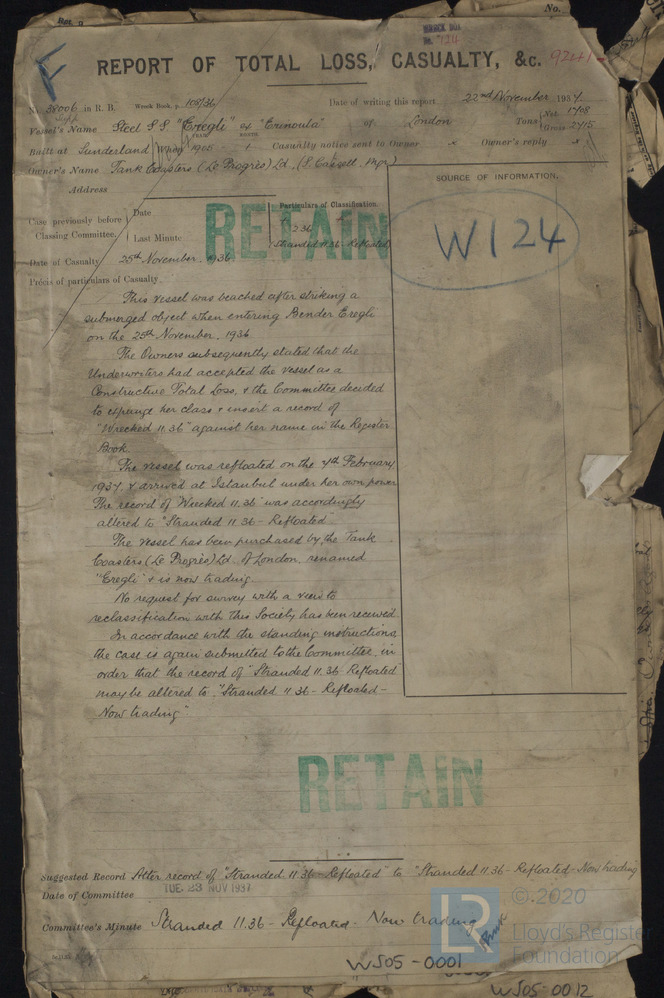 Rpt. 9
No.
WRECK BOX
No. 124
F
REPORT OF TOTAL LOSS, CASUALTY, &c. 9241
No. 38006 in R. B. Wreck Book, p. 105/36 Date of writing this report 22nd November 1937
Vessel's Name Steel S S "Eregli" ex "Erinoula" of London Tons Net 1708
Gross 2715
Built at Sunderland YEAR 1905 MONTH Casualty notice sent to Owner × Owner's reply ×
Owner's Name Tank Coasters (Le Progrès) Ld.
Address
SOURCE OF INFORMATION.
W124
Case previously before Classing Committee. Date
Last Minute
Particulars of Classification.
Stranded 11.36 - Refloated
RETAIN
Date of Casualty 25th November, 1936
Précis of particulars of Casualty
This vessel was beached after striking a
submerged object when entering Bender Eregli
on the 25th November, 1936
The Owners subsequently stated that the
Underwriters had accepted the vessel as a
Constructive Total Loss, & the Committee decided
to expunge her class & insert a record of
"Wrecked 11.36" against her name in the Register
Book.
The vessel was refloated on the 4th February,
1937, & arrived at Istanbul under her own power
The record of "Wrecked 11.36" was accordingly
altered to "Stranded 11.36 - Refloated"
The vessel has been purchased by the Tank
Coasters (Le Progrès) Ld. of London, renamed
"Eregli" & is now trading.
No request for survey with a view to
reclassification with this Society has been received.
In accordance with the standing instructions,
the case is again submitted to the Committee, in
order that the record of "Stranded 11.36 - Refloated
may be altered to, "Stranded 11.36 - Refloated -
Now trading".
RETAIN
Suggested Record Alter record of "Stranded 11.36 - Refloated" to "Stranded 11.36 - Refloated - Now trading
Date of Committee TUE. 23 NOV 1937
Committee's Minute Stranded 11.36 - Refloated - Now trading
© 2020
LR
Lloyd's Register
Foundation
WS05-0001
WS05-0012